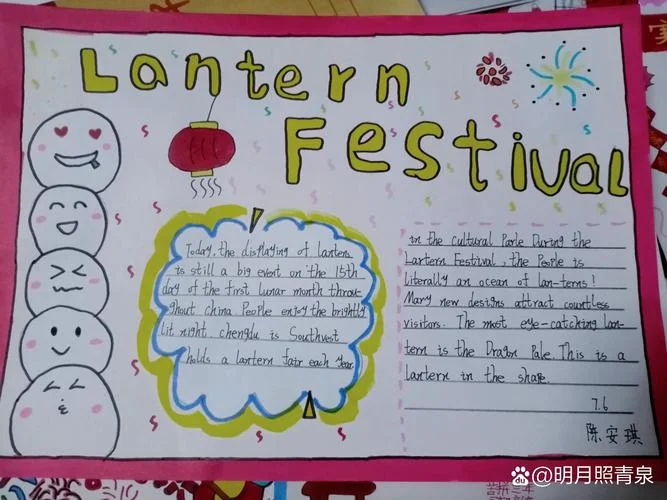 Lantern
Festival
Today, the displaying of lantern
is still a big event on the 15th
day of the first lunar month throu-
ghout china People enjoy the brightly
lit night chengdu is Southwest
holds a lantern fair each year.
in the Cultural Parle During the
Lartern Festival, the People is
Literally an ocean of lan-terns!
Many new designs attract countless
visitors. The most eye-catching lan-
tern is the Dragon Pale. This is a
lantern in the shape.
7.6
陈安琪
@明月照青泉